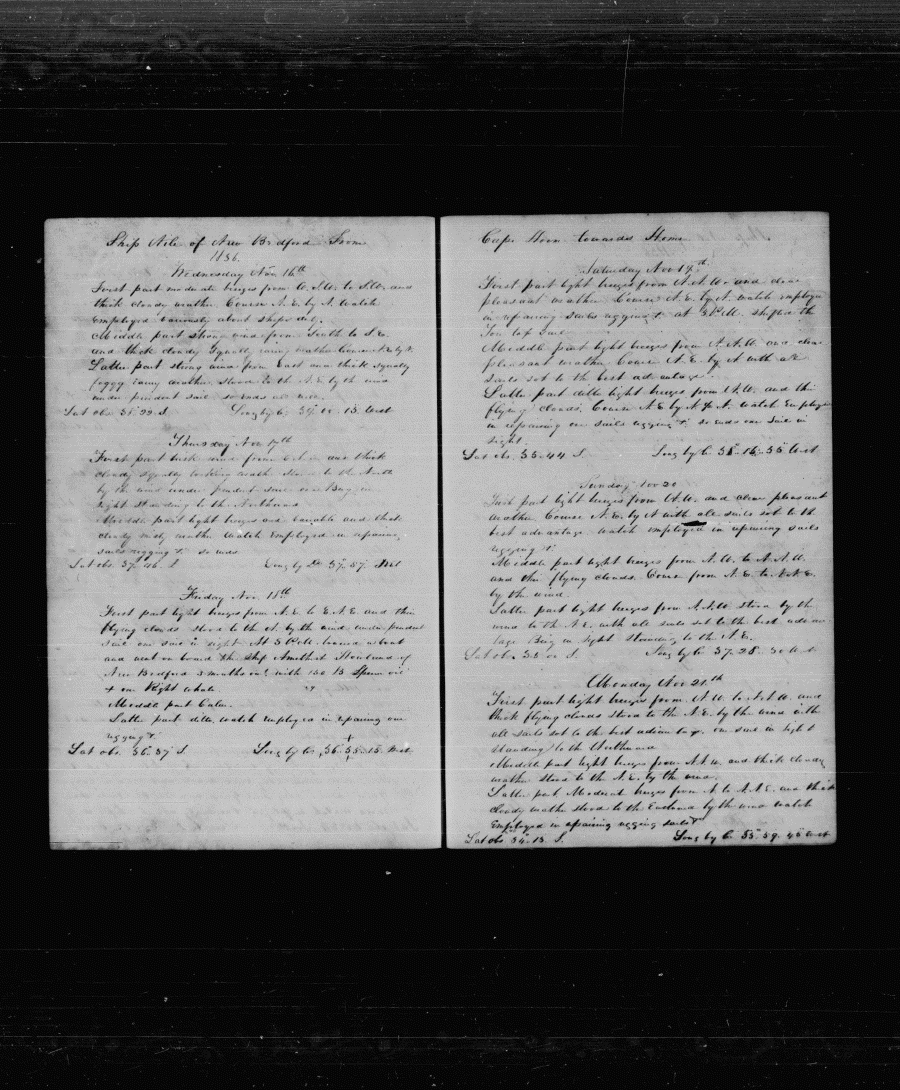 Ship Nile of New Bedford From
1836
Wednesday Nov 16th
First part moderate breezes from W.S.W. to SW. and
thick cloudy weather Course N.E. by N. Watch
employed variously about ships dut.
Middle part strong winds from South to S.E.
and thick cloudy squally rainy weather Course N.E. by N.
Latter part strong winds from East and thick squally
foggy rainy weather, stood to the N.E. by the wind
under prudent sail so ends
Lat obs. 38.22 S. Long by C. 39. 13 West
Thursday Nov 17th
First part brisk winds from and thick
cloudy squally looking weath stood to the North
by the wind under prudent sail one Brig in
sight standing to the Northward
Middle part light breezes and variable and thick
cloudy misty weather watch Employed in repairing
sails rigging &c so ends
Lat obs. 37. 46. S Long by 37. 57. West
Friday Nov. 18th
First part light breezes from N.E. to E.N.E. and thin
flying clouds stood to the N. by the wind under prudent
sail one sail in sight. At 5 P.M. about
and went on board the Ship Amethist Howland of
New Bedford 3 months out with 150 B Sperm oil
& one Right whale
Middle part Calm.
Latter part ditto, watch employed in repairing our
rigging &c
Lat obs. 36. 37 S. Long by Cr. 36. 55. 15. West
Cape Horn towards Home
Saturday Nov 19th
First part light breezes from N.N.W. and clear
pleasant weather Course N.E. by N. watch employed
in repairing sails rigging &c at 3 P.M. shifted the
Fore top sail
Middle part light breezes from N.N.W. and clear
pleasant weather Course N.E. by N with all
sails set to the best advantage
Latter part ditto light breezes from N.W. and thin
flying clouds. Course N.E. by N. Watch Employed
in repairing our sails rigging &c so ends one sail in
sight.
Lat obs. 35.44 S. Long by C. 38. 15. 35 West
Sunday Nov 20
First part light breezes from N.W. and clear pleasant
weather Course N.E. by N with all sails set to the
best advantage. watch employed in repairing sails
rigging &c
Middle part light breezes from N.W. to N.N.W.
and thin flying clouds. Course from N.E. to N.N.E.
by the wind.
Latter part light breezes from N.N.W stood by the
wind to the N.E. with all sails set to the best advan-
tage Brig in sight standing to the N.E.
Lat obs. 35 S. Long by C. 37. 28. 30 West
Monday Nov 21th
First part light breezes from N.W. to N.N.W. and
thick flying clouds stood to the N.E. by the wind with
all sails set to the best advantage. one sail in sight
standing to the Northward
Middle part light breezes from N.N.W. and thick cloudy
weather stood to the N.E. by the wind.
Latter part Moderate breezes from N. to N.N.E. and thick
cloudy weather stood to the Eastward by the wind watch
Employed in repairing rigging sails &c
Lat obs 34. 13 S. Long by C. 35. 59. 45 West